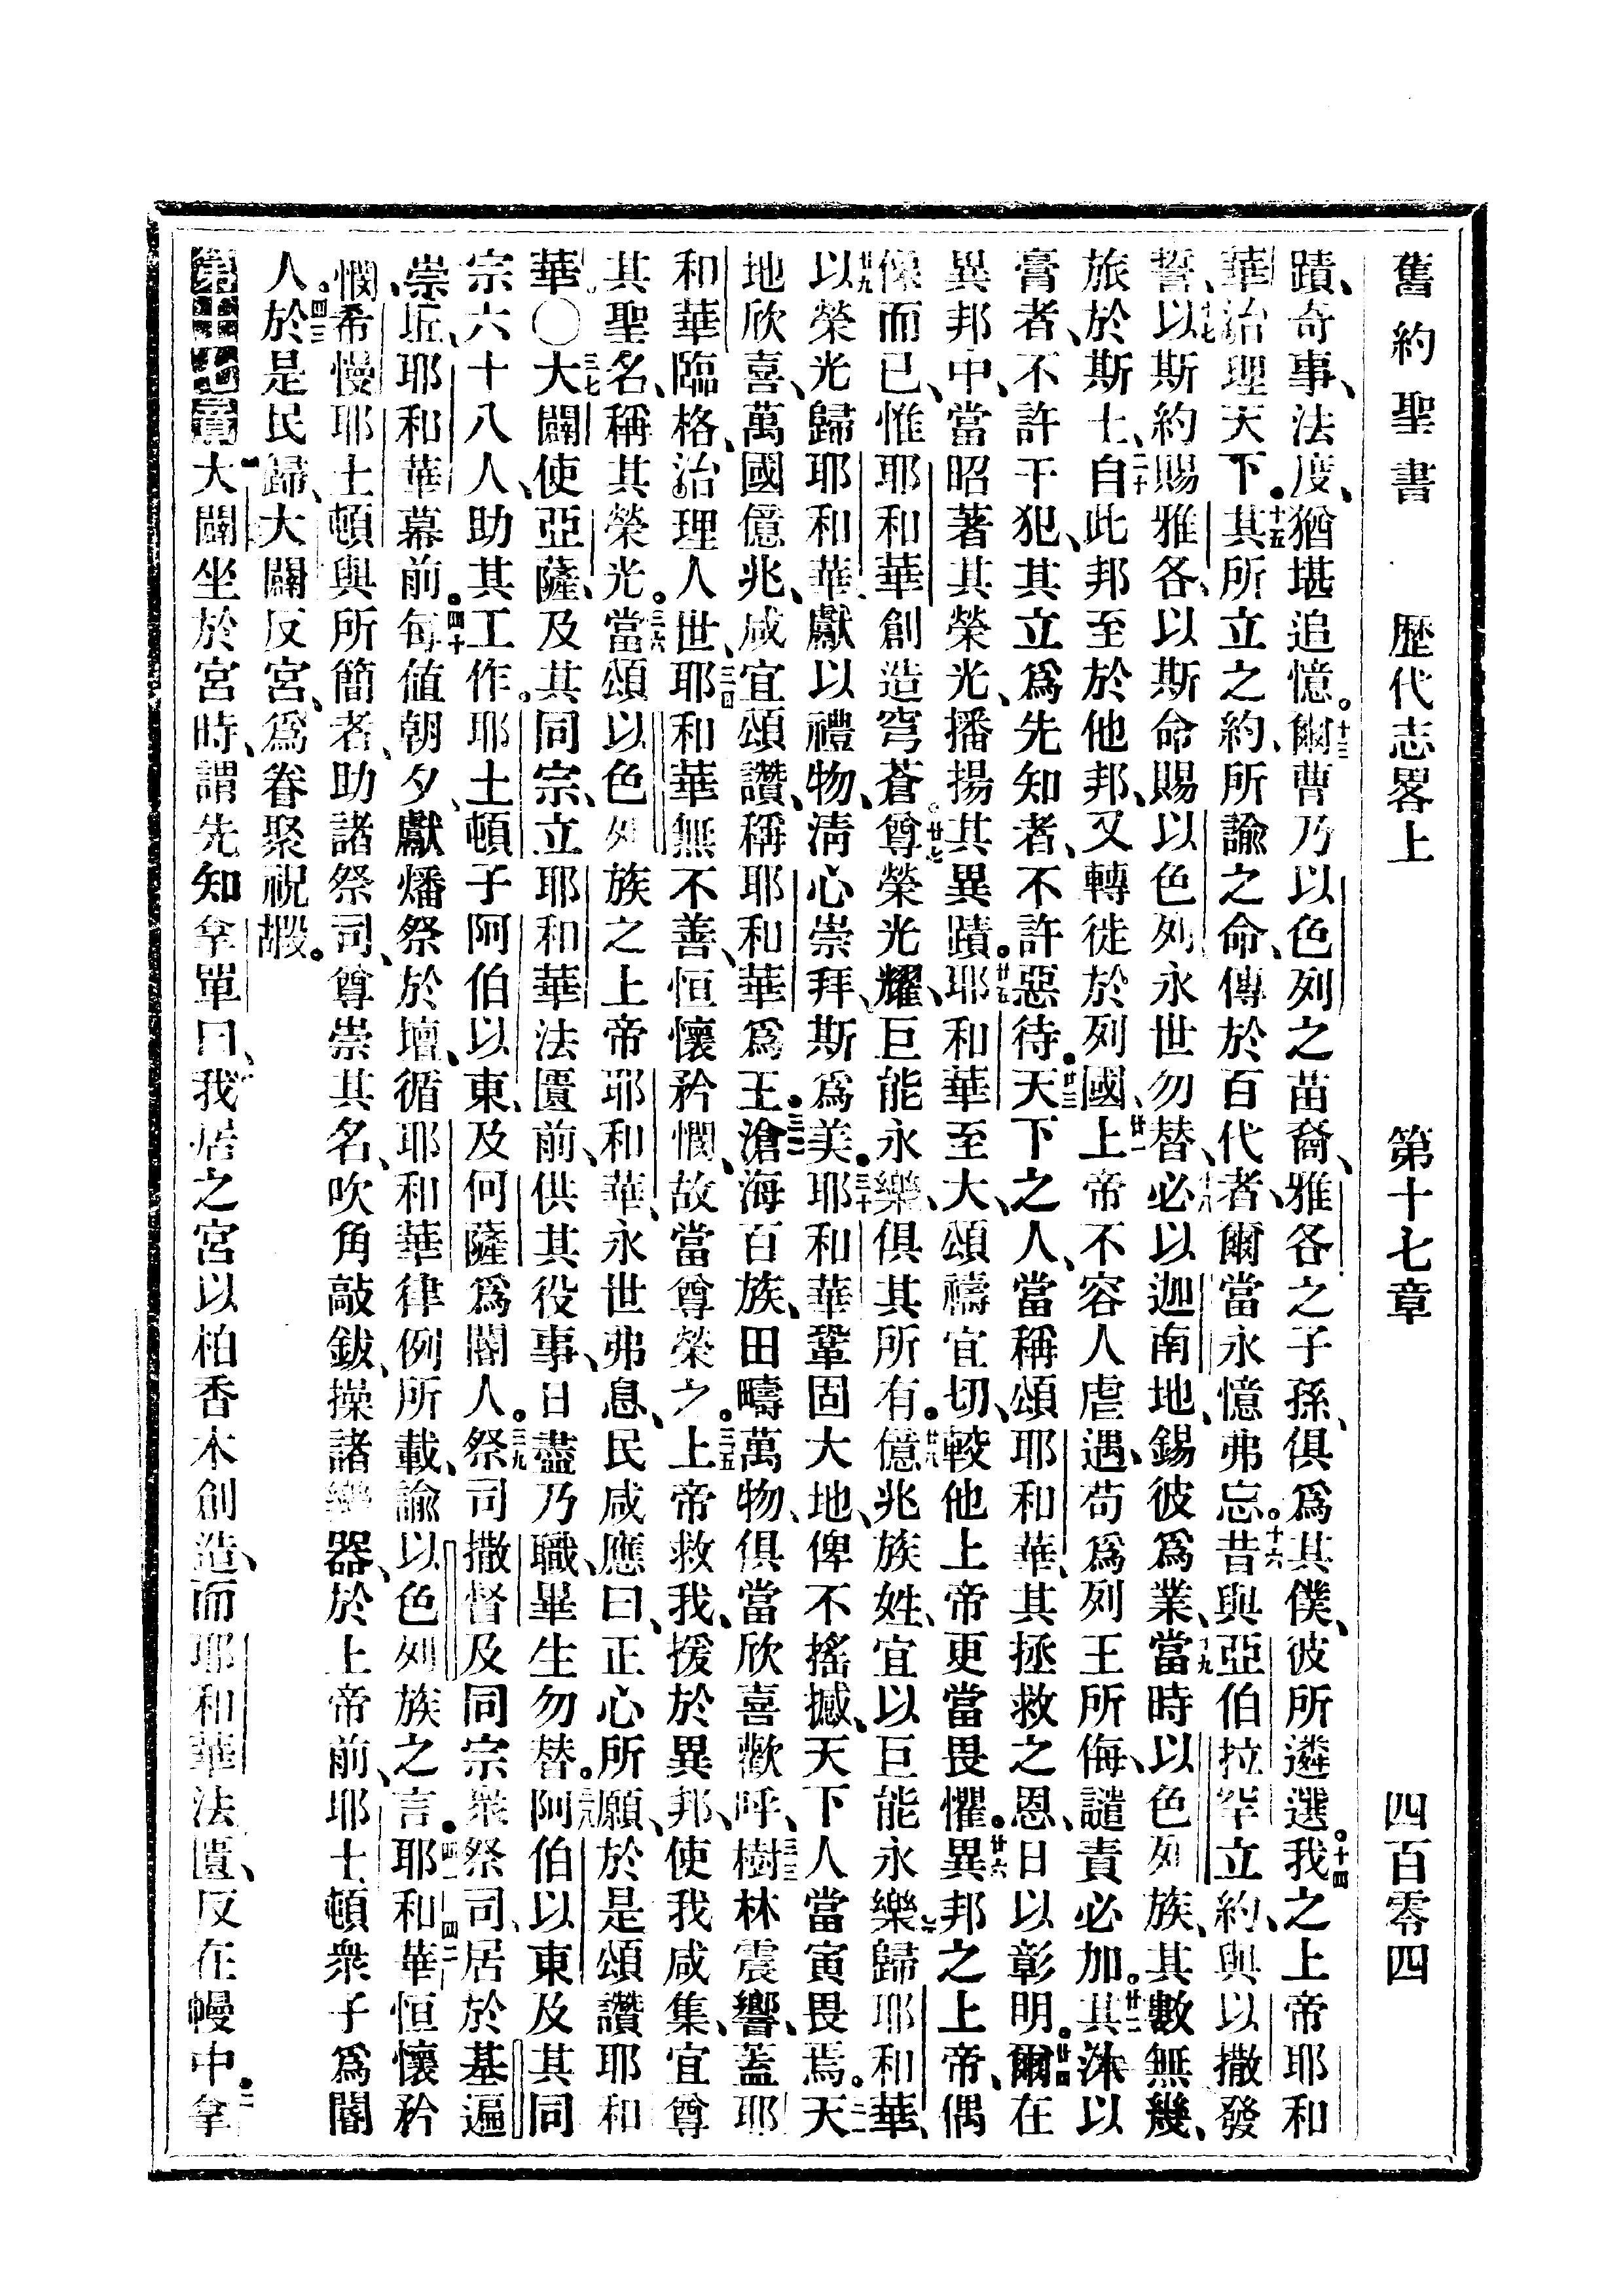 舊約聖書 歷代志畧上 第十七章 四百零四
蹟、奇事、法度、猶堪追憶。十三爾曹乃以色列之苗裔、雅各之子孫、俱爲其僕、彼所遴選。十四我之上帝耶和
華治理天下。十五其所立之約、所諭之命、傳於百代者、爾當永憶弗忘。十六昔與亞伯拉罕立約、與以撒發
誓、十七以斯約賜雅各、以斯命賜以色列、永世勿替、十八必以迦南地、錫彼爲業、十九當時以色列族、其數無幾、
旅於斯土、二十自此邦至於他邦、又轉徙於列國、廿一上帝不容人虐遇、苟爲列王所侮、譴責必加。廿二其沐以
膏者、不許干犯、其立爲先知者、不許惡待。廿三天下之人、當稱頌耶和華、其拯救之恩、日以彰明。廿四爾在
異邦中、當昭著其榮光、播揚其異蹟。廿五耶和華至大、頌禱宜切、較他上帝更當畏懼。廿六異邦之上帝、偶
像而已、惟耶和華創造穹蒼。廿七尊榮光耀、巨能永樂、俱其所有。廿八億兆族姓、宜以巨能永樂歸耶和華、
廿九以榮光歸耶和華、獻以禮物、清心崇拜、斯爲美。三十耶和華鞏固大地、俾不搖撼、天下人當寅畏焉。三一天
地欣喜、萬國億兆、咸宜頌讚、稱耶和華爲王。三二滄海百族、田疇萬物、俱當欣喜歡呼、三三樹林震響、蓋耶
和華臨格、治理人世、三四耶和華無不善、恒懷矜憫、故當尊榮之。三五上帝救我、援於異邦、使我咸集、宜尊
其聖名、稱其榮光。三六當頌以色列族之上帝耶和華、永世弗息、民咸應曰、正心所願、於是頌讚耶和
華。〇三七大闢使亞薩、及其同宗、立耶和華法匱前、供其役事、日盡乃職、畢生勿替。三八阿伯以東及其同
宗六十八人、助其工作。耶土頓子阿伯以東、及何薩爲閽人。三九祭司撒督及同宗衆祭司、居於基遍
崇坵、耶和華幕前。四十每值朝夕、獻燔祭於壇、循耶和華律例所載、諭以色列族之言。四一耶和華四二恒懷矜
憫、希慢耶土頓與所簡者、助諸祭司、尊崇其名、吹角敲鈸、操諸樂器、於上帝前、耶士頓衆子爲閽
人。四三於是民歸、大闢反宮、爲眷聚祝嘏。
第十七章一大闢坐於宮時、謂先知拿單曰、我居之宮以柏香木創造、而耶和華法匱、反在幔中。二拿